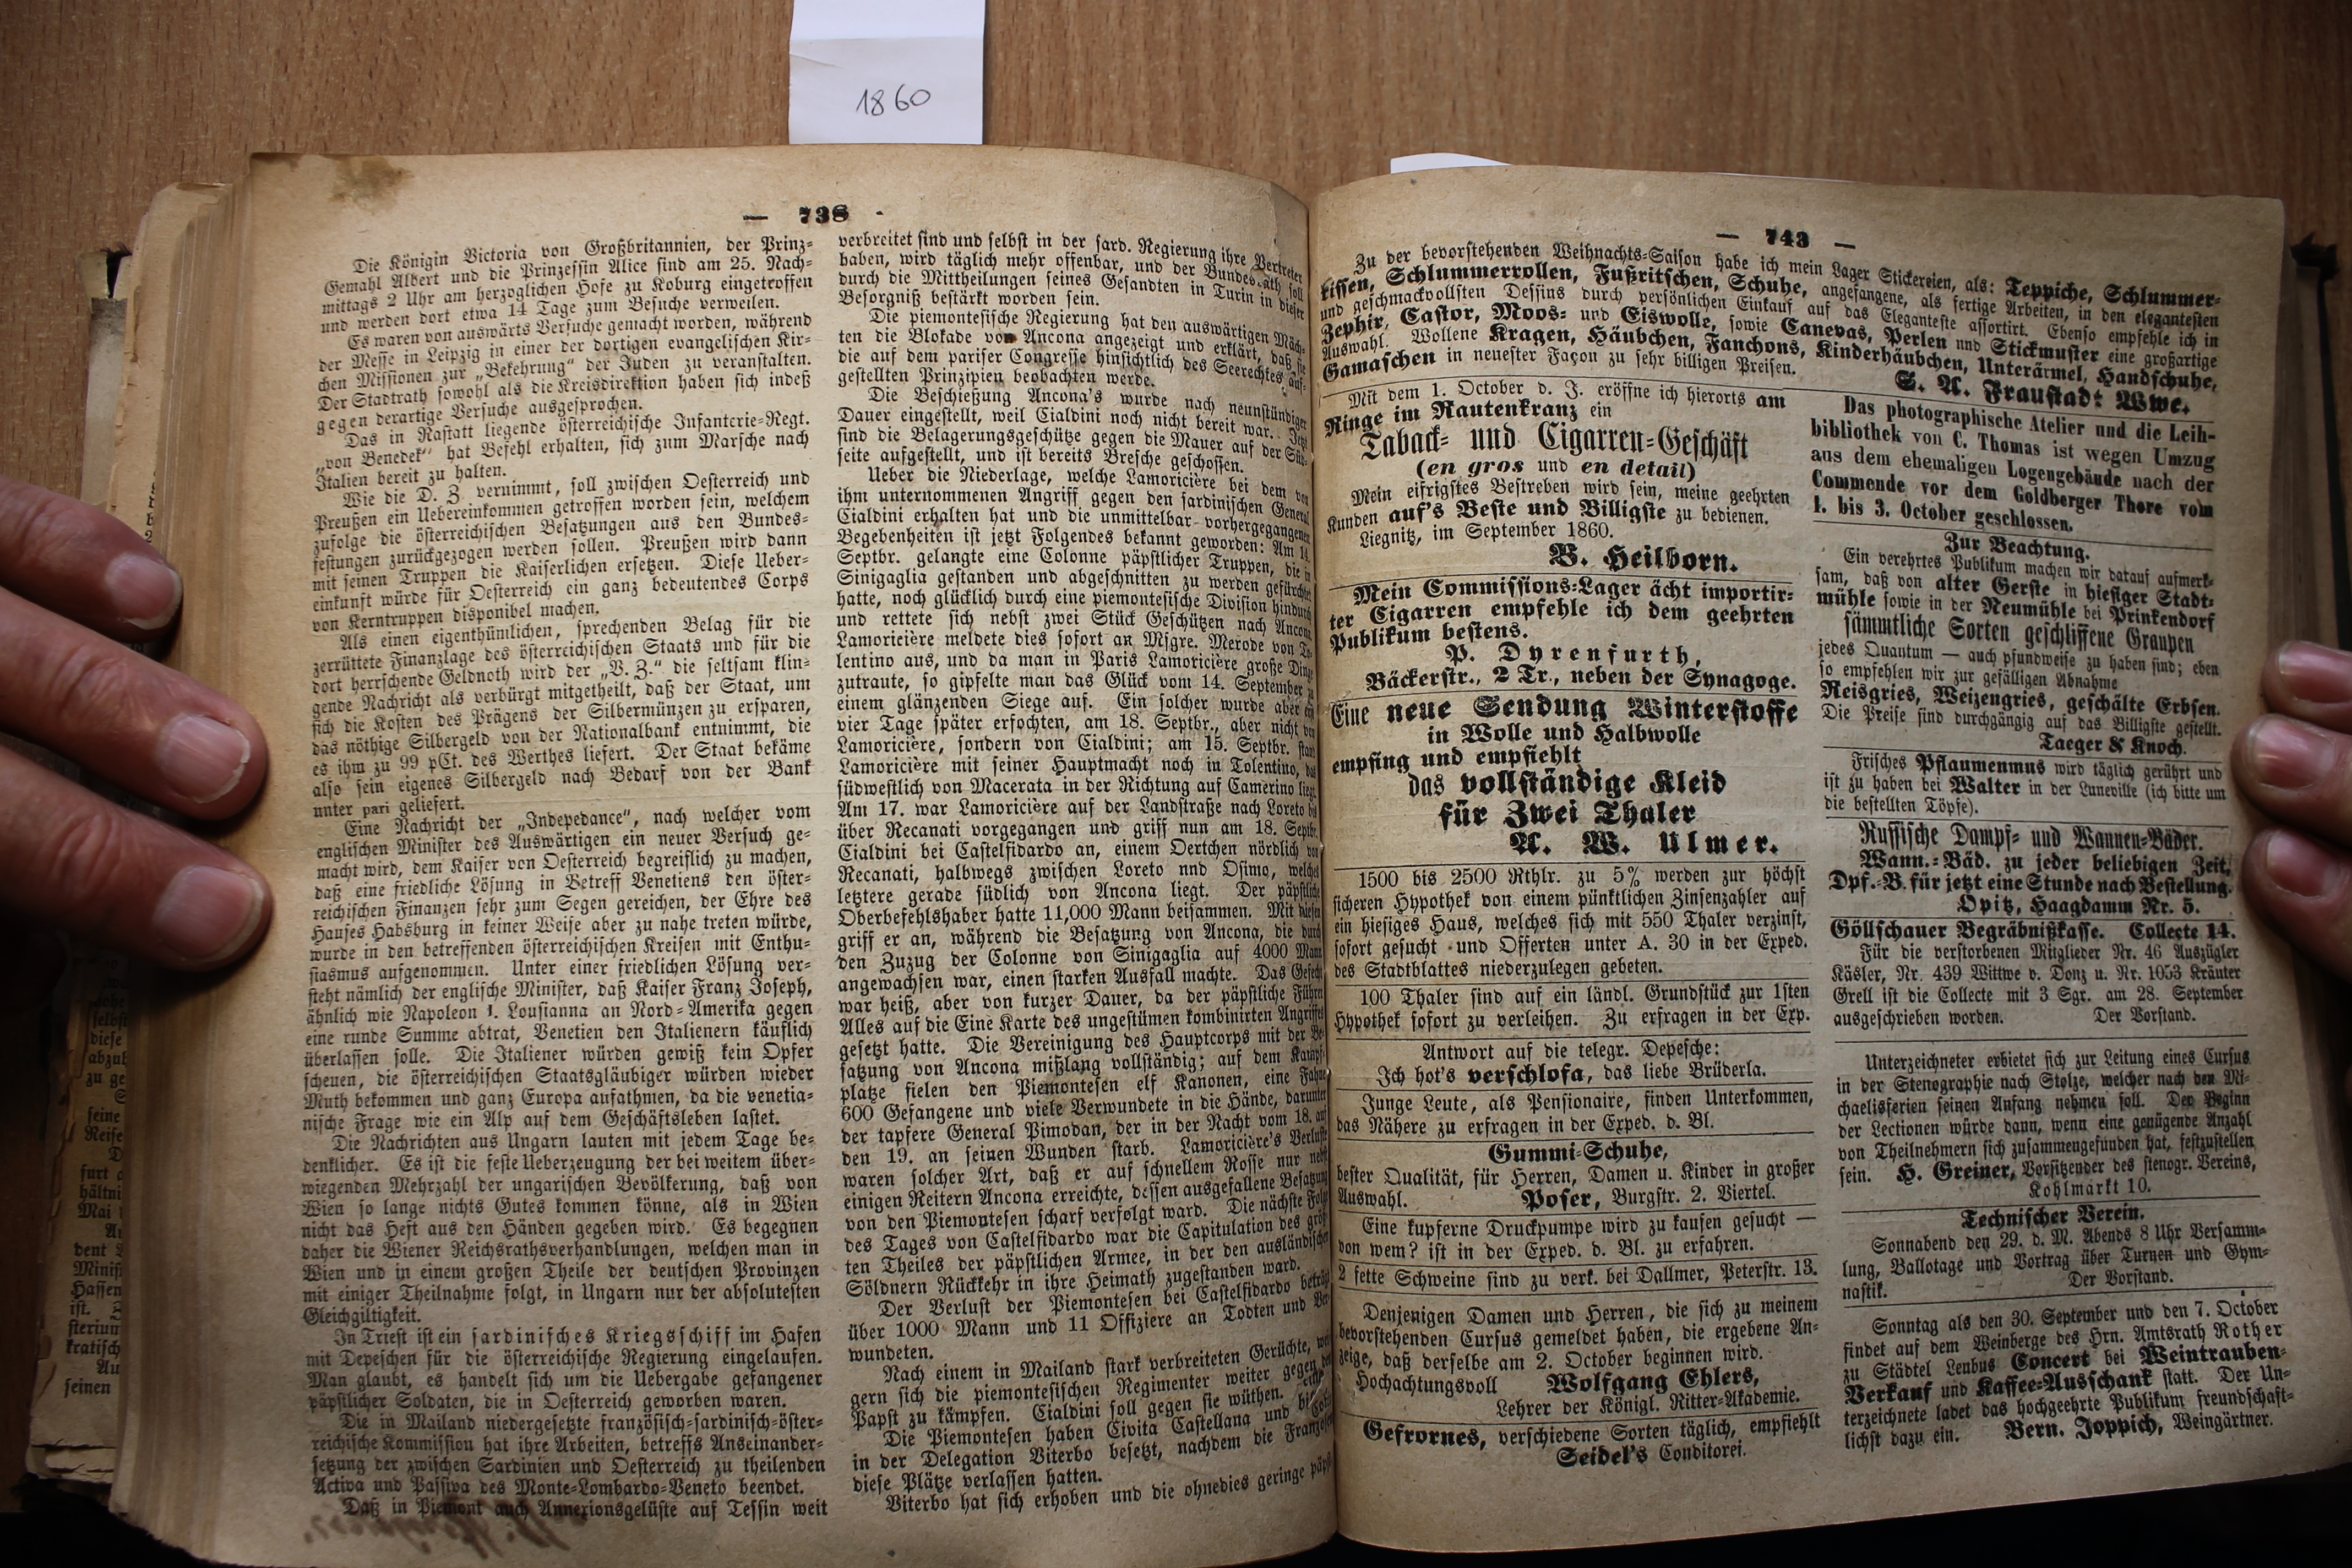 1860
— 738 -
Die Königin Victoria von Großbritannien, der Prinz-
Gemahl Albert und die Prinzessin Alice sind am 25. Nach-
mittags 2 Uhr am herzoglichen Hofe zu Koburg eingetroffen
und werden dort etwa 14 Tage zum Besuche verweilen.
Es waren von auswärts Versuche gemacht worden, während
der Messe in Leipzig in einer der dortigen evangelischen Kir-
chen Missionen zur „Bekehrung“ der Juden zu veranstalten.
Der Stadtrath sowohl als die Kreisdirektion haben sich indeß
gegen derartige Versuche ausgesprochen.
Das in Rastatt liegende österreichische Infanterie-Regt.
„von Benedek“ hat Befehl erhalten, sich zum Marsche nach
Italien bereit zu halten.
Wie die D. Z. vernimmt, soll zwischen Oesterreich und
Preußen ein Uebereinkommen getroffen worden sein, welchem
zufolge die österreichischen Besatzungen aus den Bundes-
festungen zurückgezogen werden sollen. Preußen wird dann
mit seinen Truppen die Kaiserlichen ersetzen. Diese Ueber-
einkunft würde für Oesterreich ein ganz bedeutendes Corps
von Kerntruppen disponibel machen.
Als einen eigenthümlichen, sprechenden Belag für die
zerrüttete Finanzlage des österreichischen Staats und für die
dort herrschende Geldnoth wird der „V. Z.“ die seltsam klin-
gende Nachricht als verbürgt mitgetheilt, daß der Staat, um
sich die Kosten des Prägens der Silbermünzen zu ersparen,
das nöthige Silbergeld von der Nationalbank entnimmt, die
es ihm zu 99 pCt. des Werthes liefert. Der Staat bekäme
also sein eigenes Silbergeld nach Bedarf von der Bank
unter pari geliefert.
Eine Nachricht der „Indepedance“, nach welcher vom
englischen Minister des Auswärtigen ein neuer Versuch ge-
macht wird, dem Kaiser von Oesterreich begreiflich zu machen,
daß eine friedliche Lösung in Betreff Venetiens den öster-
reichischen Finanzen sehr zum Segen gereichen, der Ehre des
Hauses Habsburg in keiner Weise aber zu nahe treten würde,
wurde in den betreffenden österreichischen Kreisen mit Enthu-
siasmus aufgenommen. Unter einer friedlichen Lösung ver-
steht nämlich der englische Minister, daß Kaiser Franz Joseph,
ähnlich wie Napoleon I. Lousianna an Nord-Amerika gegen
eine runde Summe abtrat, Venetien den Italienern käuflich
überlassen solle. Die Italiener würden gewiß kein Opfer
scheuen, die österreichischen Staatsgläubiger würden wieder
Muth bekommen und ganz Europa aufathmen, da die venetia-
nische Frage wie ein Alp auf dem Geschäftsleben lastet.
Die Nachrichten aus Ungarn lauten mit jedem Tage be-
denklicher. Es ist die feste Ueberzeugung der bei weitem über-
wiegenden Mehrzahl der ungarischen Bevölkerung, daß von
Wien so lange nichts Gutes kommen könne, als in Wien
nicht das Heft aus den Händen gegeben wird. Es begegnen
daher die Wiener Reichsrathsverhandlungen, welchen man in
Wien und in einem großen Theile der deutschen Provinzen
mit einiger Theilnahme folgt, in Ungarn nur der absolutesten
Gleichgiltigkeit.
In Triest ist ein sardinisches Kriegsschiff im Hafen
mit Depeschen für die österreichische Regierung eingelaufen.
Man glaubt, es handelt sich um die Uebergabe gefangener
päpstlicher Soldaten, die in Oesterreich geworben waren.
Die in Mailand niedergesetzte französisch-sardinisch-öster-
reichische Kommission hat ihre Arbeiten, betreffs Anseinander-
setzung der zwischen Sardinien und Oesterreich zu theilenden
Activa und Passiva des Monte-Lombardo-Veneto beendet.
Daß in Piemont auch Annexionsgelüste auf Tessin weit
verbreitet sind und selbst in der sard. Regierung ihre Vertreter
haben, wird täglich mehr offenbar, und der Bundesrath soll
durch die Mittheilungen seines Gesandten in Turin in dieser
Besorgniß bestärkt worden sein.
Die piemontesische Regierung hat den auswärtigen Mäch-
ten die Blokade von Ancona angezeigt und erklärt, daß sie
die auf dem pariser Congresse hinsichtlich des Seerechtes auf-
gestellten Prinzipien beobachten werde.
Die Beschießung Ancona's wurde nach neunstündiger
Dauer eingestellt, weil Cialdini noch nicht bereit war. Jetzt
sind die Belagerungsgeschütze gegen die Mauer auf der Süd-
seite aufgestellt, und ist bereits Bresche geschossen.
Ueber die Niederlage, welche Lamoricière bei dem von
ihm unternommenen Angriff gegen den sardinischen General
Cialdini erhalten hat und die unmittelbar vorhergegangenen
Begebenheiten ist jetzt Folgendes bekannt geworden: Am 14.
Septbr. gelangte eine Colonne päpstlicher Truppen, die in
Sinigaglia gestanden und abgeschnitten zu werden gefürchtet
hatte, noch glücklich durch eine piemontesische Division hindurch
und rettete sich nebst zwei Stück Geschützen nach Ancona
Lamoricière meldete dies sofort an Msgre. Merode von To-
lentino aus, und da man in Paris Lamoricière große Dinge
zutraute, so gipfelte man das Glück vom 14. September zu
einem glänzenden Siege auf. Ein solcher wurde aber erst
vier Tage später erfochten, am 18. Septbr., aber nicht von
Lamoricière, sondern von Cialdini; am 15. Septbr. stand
Lamoricière mit seiner Hauptmacht noch in Tolentino, das
südwestlich von Macerata in der Richtung auf Camerino liegt.
Am 17. war Lamoricière auf der Landstraße nach Loreto bis
über Recanati vorgegangen und griff nun am 18. Septbr.
Cialdini bei Castelfidardo an, einem Oertchen nördlich von
Recanati, halbwegs zwischen Loreto und Osimo, welches
letztere gerade südlich von Ancona liegt. Der päpstliche
Oberbefehlshaber hatte 11,000 Mann beisammen. Mit diesen
griff er an, während die Besatzung von Ancona, die durch
den Zuzug der Colonne von Sinigaglia auf 4000 Mann
angewachsen war, einen starken Ausfall machte. Das Gefecht
war heiß, aber von kurzer Dauer, da der päpstliche Führer
Alles auf die Eine Karte des ungestümen kombinirten Angriffes
gesetzt hatte. Die Vereinigung des Hauptcorps mit der Be-
satzung von Ancona mißlang vollständig; auf dem Kampf-
platze fielen den Piemontesen elf Kanonen, eine Fahne
600 Gefangene und viele Verwundete in die Hände, darunter
der tapfere General Pimodan, der in der Nacht vom 18. auf
den 19. an seinen Wunden starb. Lamoricière's Verluste
waren solcher Art, daß er auf schnellem Rosse nur nebst
einigen Reitern Ancona erreichte, dessen ausgefallene Besatzung
von den Piemontesen scharf verfolgt ward. Die nächste Folge
des Tages von Castelfidardo war die Capitulation des größ-
ten Theiles der päpstlichen Armee, in der den ausländischen
Söldnern Rückkehr in ihre Heimath zugestanden ward.
Der Verlust der Piemontesen bei Castelfidardo beträgt
über 1000 Mann und 11 Offiziere an Todten und Ver-
wundeten.
Nach einem in Mailand stark verbreiteten Gerüchte, wei-
gern sich die piemontesischen Regimenter weiter gegen den
Papst zu kämpfen. Cialdini soll gegen sie wüthen.
Die Piemontesen haben Civita Castellana und
in der Delegation Viterbo besetzt, nachdem die Franzosen
diese Plätze verlassen hatten.
Viterbo hat sich erhoben und die ohnedies geringe päpst-
— 743 —
Zu der bevorstehenden Weihnachts-Saison habe ich mein Lager Stickereien, als: Teppiche, Schlummer-
kissen, Schlummerrollen, Fußritschen, Schuhe, angefangene, als fertige Arbeiten, in den elegantesten
und geschmackvollsten Dessins durch persönlichen Einkauf auf das Eleganteste assortirt. Ebenso empfehle ich in
Zephir, Castor, Moos- und Eiswolle, sowie Canevas, Perlen und Stickmuster eine großartige
Auswahl. Wollene Kragen, Häubchen, Fanchons, Kinderhäubchen, Unterärmel, Handschuhe,
Gamaschen in neuester Façon zu sehr billigen Preisen.
S. A. Fraustadt Wwe.
Mit dem 1. October d. J. eröffne ich hierorts am
Ringe im Rautenkranz ein
Taback- und Cigarren-Geschäft
(en gros und en detail)
Mein eifrigstes Bestreben wird sein, meine geehrten
Kunden auf's Beste und Billigste zu bedienen.
Liegnitz, im September 1860.
B. Heilborn.
Mein Commissions-Lager ächt importir-
ter Cigarren empfehle ich dem geehrten
Publikum bestens.
P. Dyrenfurth,
Bäckerstr., 2 Tr., neben der Synagoge.
Eine neue Sendung Winterstoffe
in Wolle und Halbwolle
empfing und empfiehlt
das vollständige Kleid
für Zwei Thaler
A. W. Ulmer.
1500 bis 2500 Rthlr. zu 5% werden zur höchst
sicheren Hypothek von einem pünktlichen Zinsenzahler auf
ein hiesiges Haus, welches sich mit 550 Thaler verzinst,
sofort gesucht und Offerten unter A. 30 in der Exped.
des Stadtblattes niederzulegen gebeten.
100 Thaler sind auf ein ländl. Grundstück zur 1sten
Hypothek sofort zu verleihen. Zu erfragen in der Exp.
Antwort auf die telegr. Depesche:
Ich hot's verschlofa, das liebe Brüderla.
Junge Leute, als Pensionaire, finden Unterkommen,
das Nähere zu erfragen in der Exped. d. Bl.
Gummi-Schuhe,
bester Qualität, für Herren, Damen u. Kinder in großer
Auswahl. Poser, Burgstr. 2. Viertel.
Eine kupferne Druckpumpe wird zu kaufen gesucht —
von wem? ist in der Exped. d. Bl. zu erfahren.
2 fette Schweine sind zu verk. bei Dallmer, Peterstr. 13.
Denjenigen Damen und Herren, die sich zu meinem
bevorstehenden Cursus gemeldet haben, die ergebene An-
zeige, daß derselbe am 2. October beginnen wird.
Hochachtungsvoll Wolfgang Ehlers,
Lehrer der Königl. Ritter-Akademie.
Gefrornes, verschiedene Sorten täglich, empfiehlt
Seidel's Conditorei.
Das photographische Atelier und die Leih-
bibliothek von C. Thomas ist wegen Umzug
aus dem ehemaligen Logengebäude nach der
Commende vor dem Goldberger Thore vom
1. bis 3. October geschlossen.
Zur Beachtung.
Ein verehrtes Publikum machen wir darauf aufmerk-
sam, daß von alter Gerste in hiesiger Stadt-
mühle sowie in der Neumühle bei Prinkendorf
sämmtliche Sorten geschliffene Graupen
jedes Quantum — auch pfundweise zu haben sind; eben
so empfehlen wir zur gefälligen Abnahme
Reisgries, Weizengries, geschälte Erbsen.
Die Preise sind durchgängig auf das Billigste gestellt.
Taeger & Knoch.
Frisches Pflaumenmus wird täglich gerührt und
ist zu haben bei Walter in der Luneville (ich bitte um
die bestellten Töpfe).
Russische Dampf- und Wannen-Bäder.
Wann.-Bäd. zu jeder beliebigen Zeit,
Dpf.-B. für jetzt eine Stunde nach Bestellung.
Opitz, Haagdamm Nr. 5.
Göllschauer Begräbnißkasse. Collecte 14.
Für die verstorbenen Mitglieder Nr. 46 Auszügler
Käsler, Nr. 439 Wittwe v. Donz u. Nr. 1053 Kräuter
Grell ist die Collecte mit 3 Sgr. am 28. September
ausgeschrieben worden. Der Vorstand.
Unterzeichneter erbietet sich zur Leitung eines Cursus
in der Stenographie nach Stolze, welcher nach den Mi-
chaelisferien seinen Anfang nehmen soll. Der Beginn
der Lectionen würde dann, wenn eine genügende Anzahl
von Theilnehmern sich zusammengefunden hat, festzustellen
sein. H. Greiner, Vorsitzender des stenogr. Vereins,
Kohlmarkt 10.
Technischer Verein.
Sonnabend den 29. d. M. Abends 8 Uhr Versamm-
lung, Ballotage und Vortrag über Turnen und Gym-
nastik. Der Vorstand.
Sonntag als den 30. September und den 7. October
findet auf dem Weinberge des Hrn. Amtsrath Rother
zu Städtel Leubus Concert bei Weintrauben-
Verkauf und Kaffee-Ausschank statt. Der Un-
terzeichnete ladet das hochgeehrte Publikum freundschaft-
lichst dazu ein. Bern. Joppich, Weingärtner.